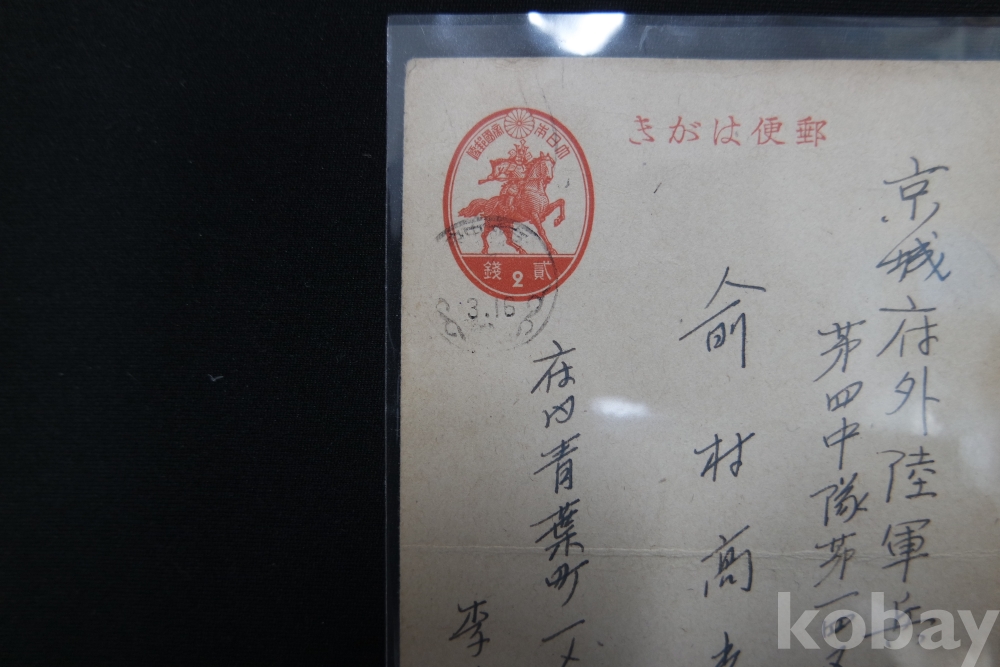 郵便はがき
大日本帝國郵便
貳2錢
3.16
京城府外陸軍兵
第四中隊第一
俞村高
府内青葉町一
李
kobay